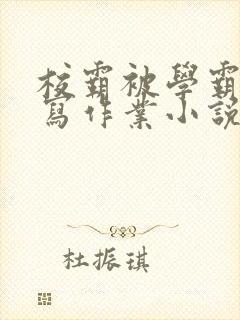 校霸被學霸
寫作業小説
杜振琪